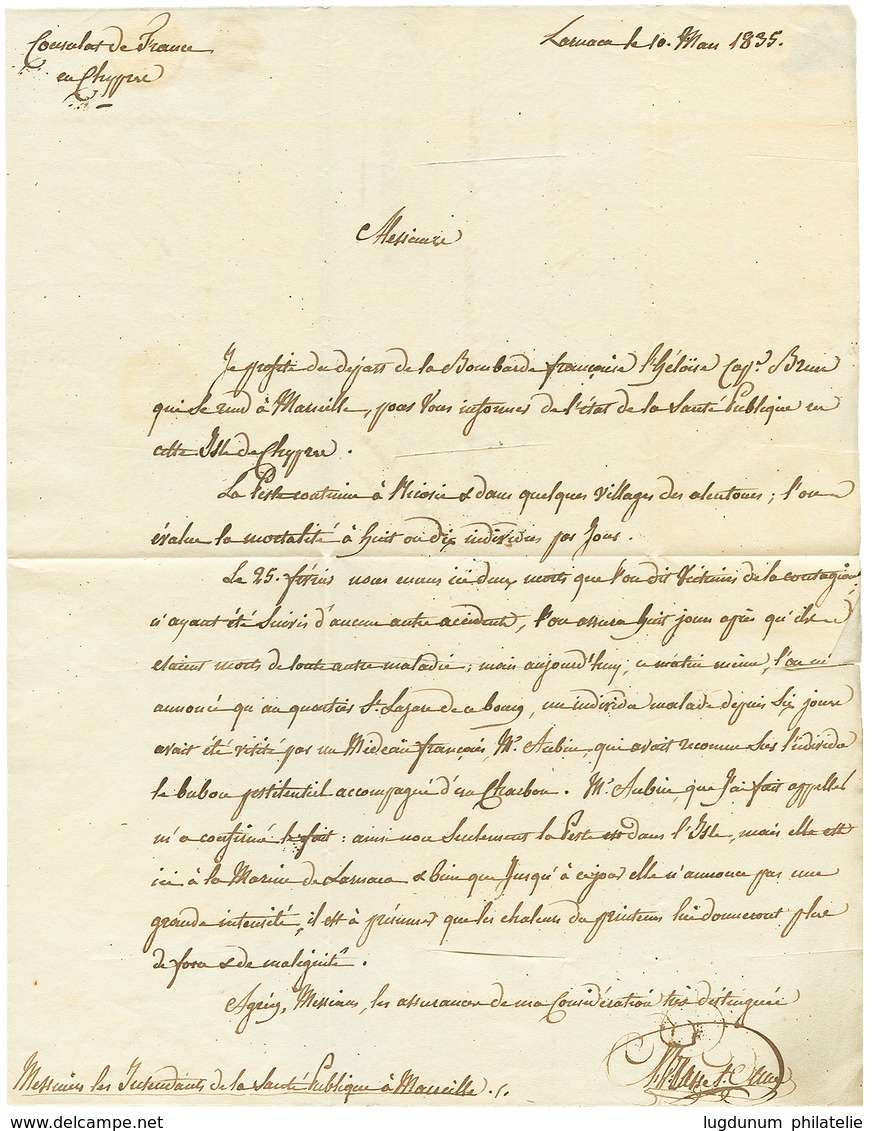 Consulat de France
en Chypre
Larnaca le 10. Mars 1835.
Messieurs
Je profite du départ de la Bombarde française l'Héloïse Cap.ne Brun
qui se rend à Marseille, pour Vous informer de l'état de la Santé Publique en
cette Isle de Chypre.
La Peste continue à Nicosie & dans quelques villages des alentours; l'on
évalue la mortalité à huit ou dix individus par Jour.
Le 25. février nous eumes ici deux morts que l'on dit Victimes de la contagion
n'ayant été suivis d'aucun autre accident, l'on assura huit jours après qu'ils
étaient morts de toute autre maladie; mais aujourd'huy, ce matin même, l'on m'a
annoncé qu'au quartier St. Lazare de ce bourg, un individu malade depuis Six jours
avait été visité par un Médecin français, Mr. Aubin, qui avait reconnu sur l'individu
le bubon pestilentiel accompagné d'un Charbon. Mr. Aubin, que J'ai fait appeller
m'a confirmé le fait: ainsi non Seulement la Peste est dans l'Isle, mais elle est
ici à la Marine de Larnaca & bien que Jusqu'à ce jour elle n'annonce pas une
grande intensité, il est à présumer que les chaleurs du printems lui donneront plus
de force & de malignité.
Agréez, Messieurs, les assurances de ma Considération très distinguée
Messieurs les Intendants de la Santé Publique à Marseille.
www.delcampe.net
lugdunum philatelie